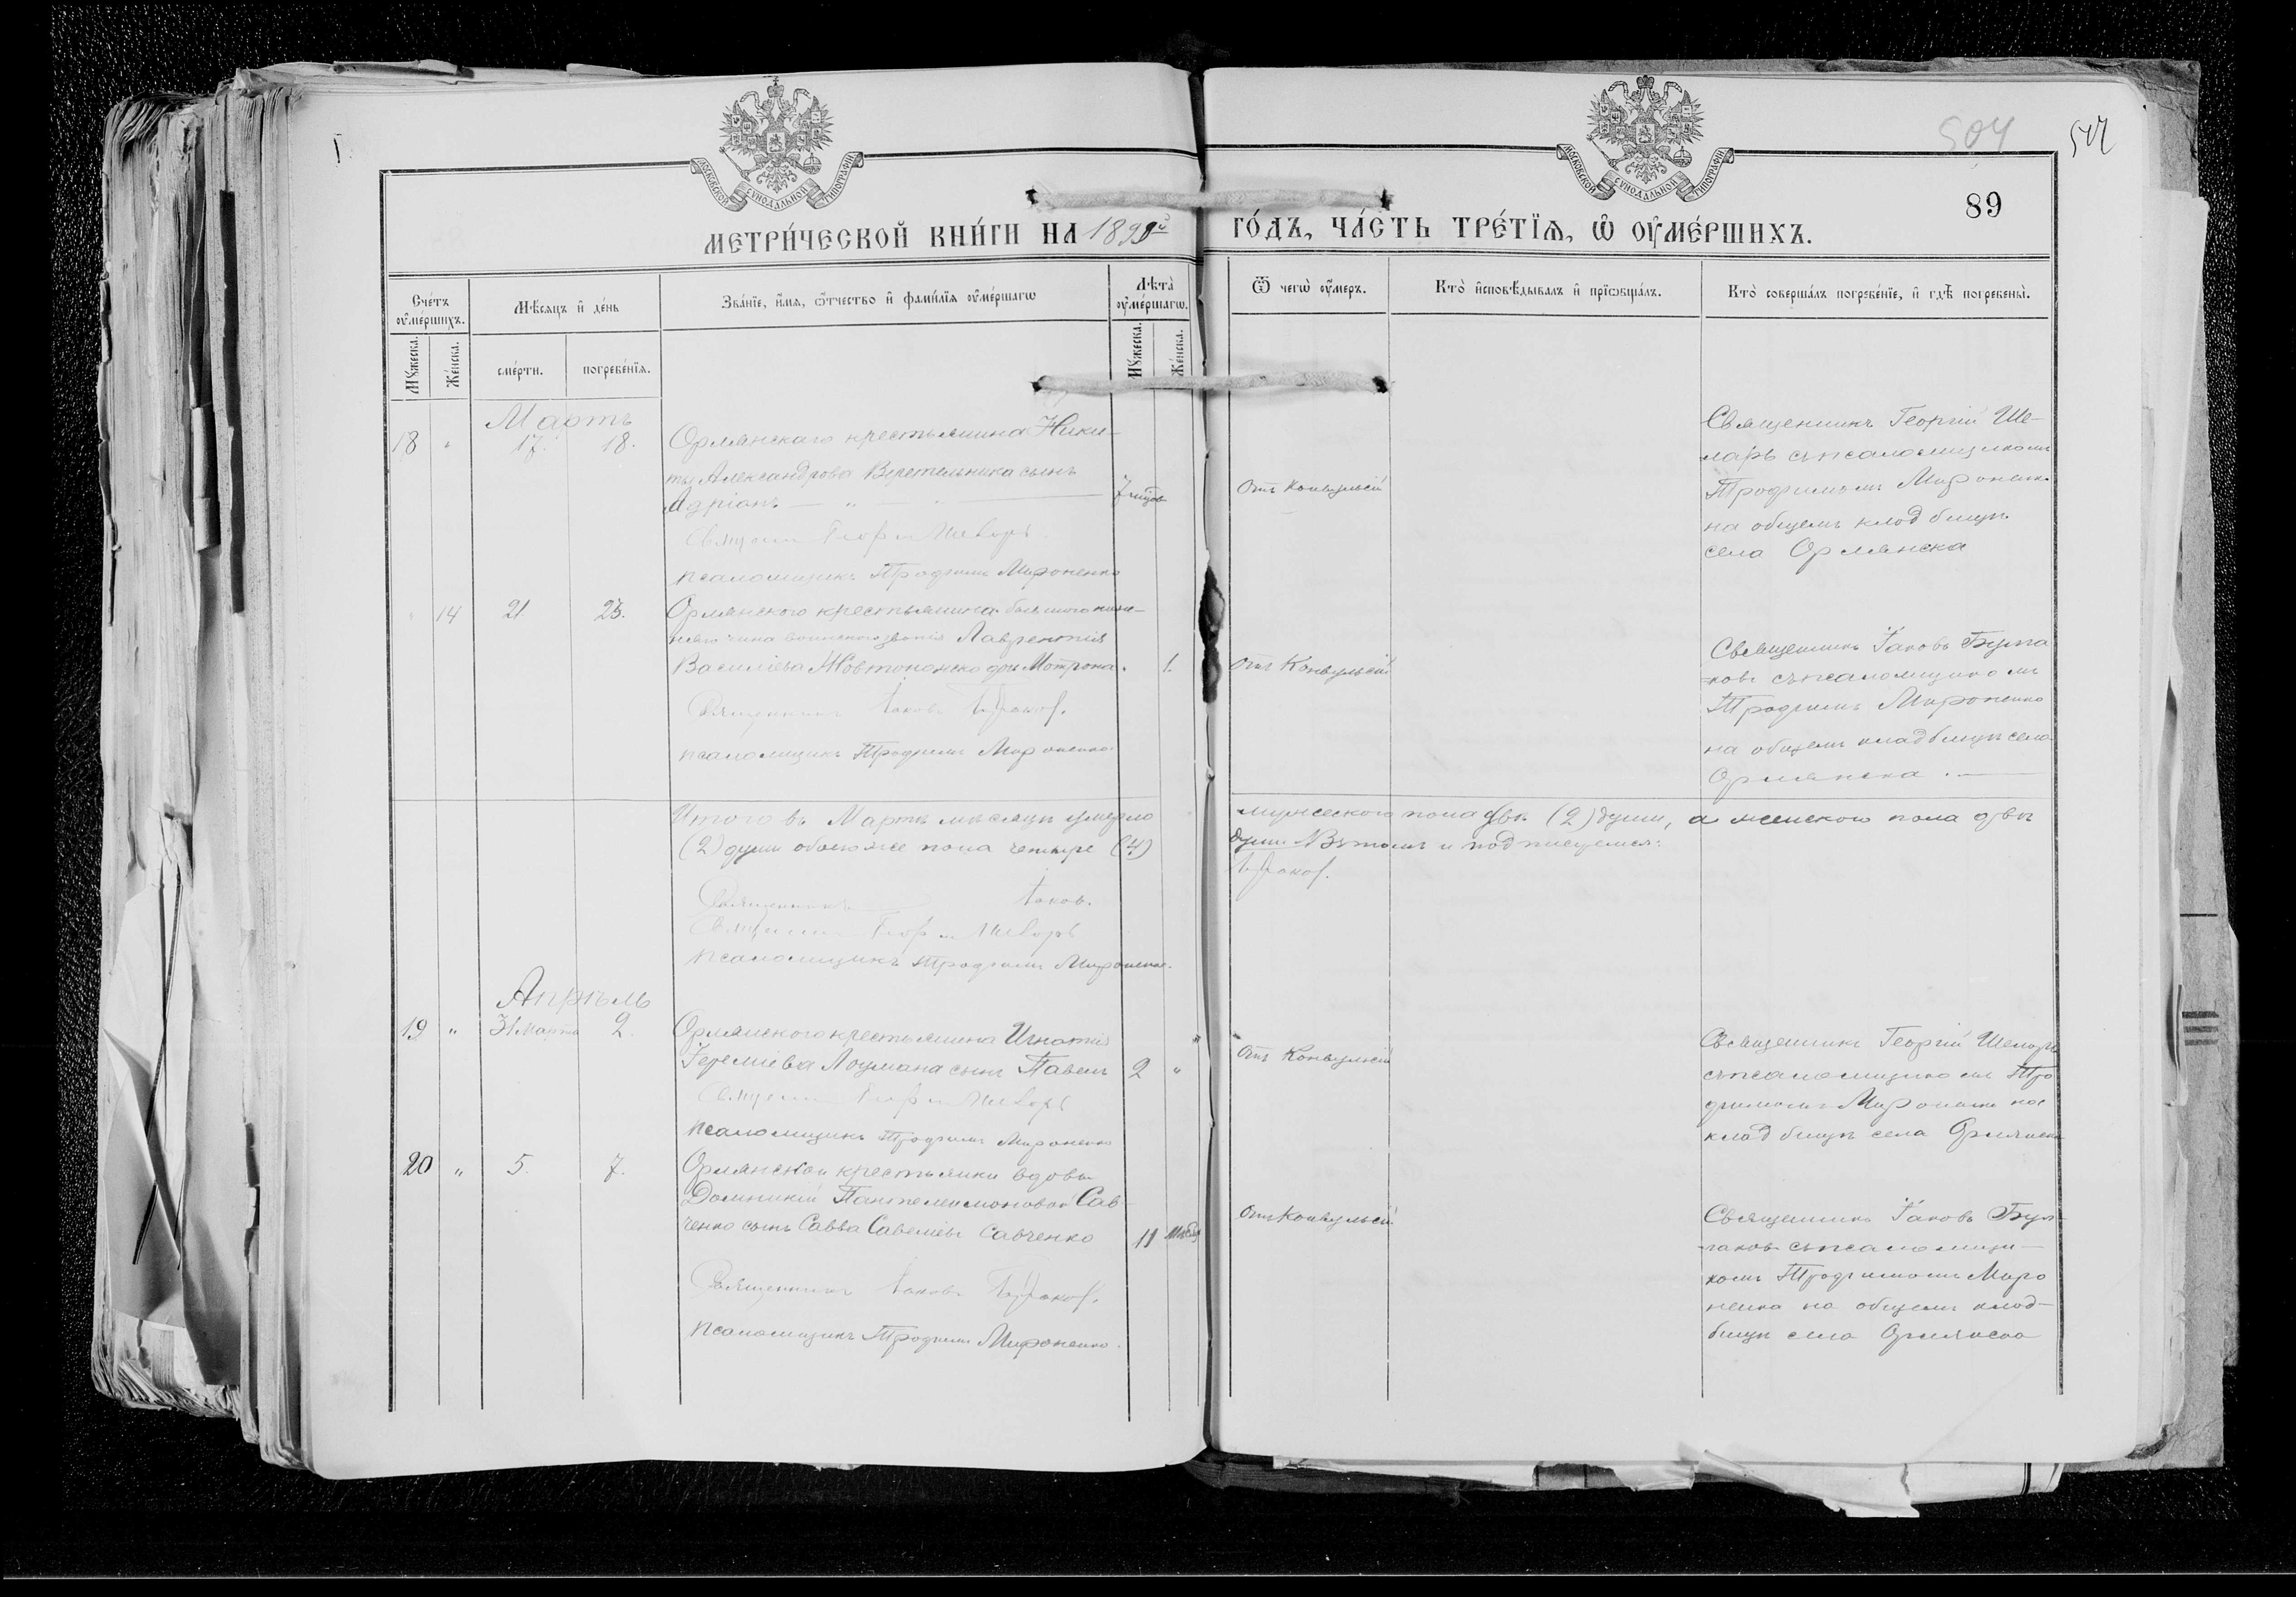 504
МОСКОВСКОЙ СѴНОДАЛЬНОЙ ТИПОГРАФІИ
МОСКОВСКОЙ СѴНОДАЛЬНОЙ ТИПОГРАФІИ
89
МЕТРИ́ЧЕСКОЙ КНИ́ГИ НА 1899й ГО́ДЪ, ЧА́СТЬ ТРЕ́ТЇѦ, Ѡ҆ ОУ҆МЕ́РШИХЪ.
Сче́тъ оу҆ме́ршихъ.
Мꙋ́жеска.
Же́нска.
Мѣ́сѧцъ и҆ де́нь
сме́рти.
погребе́нїѧ.
Зва́нїе, и҆́мѧ, ѻ҆́тчество и҆ фами́лїѧ оу҆ме́ршагѡ
Лѣ́та оу҆ме́ршагѡ.
Мꙋ́жеска.
Же́нска.
Ѿ чегѡ̀ оу҆́меръ.
Кто̀ и҆сповѣ́дывалъ и҆ прїѡбща́лъ.
Кто̀ соверша́лъ погребе́нїе, и҆ гдѣ̀ погребены̀.
Мартъ
18 " 17. 18.
Орлянскаго крестьянина Ники-
ты Александрова Веретельника сынъ
Адріанъ — " —
псаломщикъ Трофимъ Мироненко
Отъ Конвульсій
Священникъ Георгій Ше-
ларь съ псаломщикомъ
Трофимомъ Миронен.
на общемъ кладбищѣ
села Орлянска
" 14 21 23.
Орлянского крестьянина
чина воинского званія Лаврентія
Василіева Жовтопанко дочь Мотрона. 1.
Священникъ Іаковъ
псаломщикъ Трофимъ Мироненко
Отъ Конвульсій
Священникъ Іаковъ Булга
ковъ съ псаломщикомъ
Трофимъ Мироненко
на общемъ кладбищѣ села
Орлянска. —
Итого въ Мартѣ мѣсяцѣ умерло мужеского пола двѣ (2) души, а женского пола двѣ
(2) души обоего же пола четыре (4) души Въ томъ и подписуемся:
Священникъ Іаковъ
псаломщикъ Трофимъ Мироненко.
Апрѣль
19 " 31 Марта 2.
Орлянского крестьянина Игнатія
Іереміева Лоумана сынъ Павелъ 2 "
псаломщикъ Трофимъ Мироненко
Отъ Конвульсій
Священникъ Георгій Шеларь
съ псаломщикомъ Тро
фимомъ Мироненко на
кладбищѣ села Орлянска
20 " 5. 7.
Орлянской крестьянки вдовы
Домникіи Пантелеимоновой Сав
ченко сынъ Савва Савеліевъ Савченко 11 мѣсяц
Священникъ Іаковъ
псаломщикъ Трофимъ Мироненко.
Отъ Конвульсій
Священникъ Іаковъ Бул-
гаковъ съ псаломщи-
комъ Трофимомъ Миро
ненко на общемъ клад-
бищѣ села Орлянска